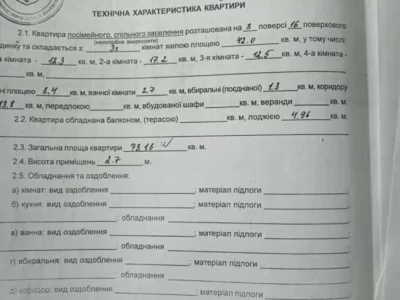 ТЕХНІЧНА ХАРАКТЕРИСТИКА КВАРТИРИ
2.1. Квартира посімейного, спільного заселення розташована на 8 поверсі 16 поверхового
(непотрібне викреслити)
динку та складається з: 3х кімнат жилою площею 42.0 кв. м, у тому числі:
а кімната - 12.3 кв. м, 2-а кімната - 17.2 кв. м, 3-я кімната - 12.5 кв. м, 4-а кімната -
кв. м,
ні площею 8.4 кв. м, ванної кімнати 2.7 кв. м, вбиральні (поєднаної) 1.3 кв. м, коридору
13.8 кв. м, передпокою кв. м, вбудованої шафи кв. м, веранди кв. м.
2.2. Квартира обладнана балконом, (терасою) кв. м, лоджією 4.96 кв. м.
2.3. Загальна площа квартири 73.16 кв. м.
2.4. Висота приміщень 2.7 м.
2.5. Обладнання та оздоблення:
а) кімнат: вид оздоблення ; матеріал підлоги
б) кухня: вид оздоблення ; матеріал підлоги
; обладнання
в) ванна: вид оздоблення ; матеріал підлоги
; обладнання
г) вбиральня: вид оздоблення ; матеріал підлоги
; обладнання
д) коридор: вид оздоблення ; матеріал підлоги